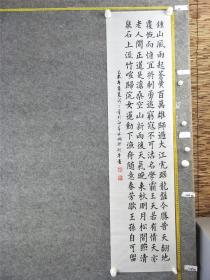 鍾山風雨起蒼黄百萬雄師過大江虎踞龍盤今勝昔天翻地
覆慨而慷宜將剩勇追窮寇不可沽名學霸王天若有情天亦
老人間正道是滄桑空山新雨後天氣晚來秋明月松間照清
泉石上流竹喧歸浣女蓮動下漁舟隨意春芳歇王孫自可留